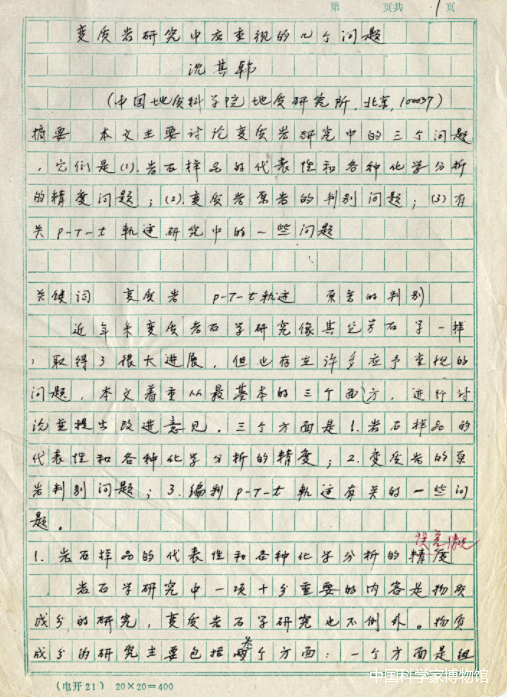 第 页共 1 页
变质岩研究中应重视的几个问题
沈其韩
(中国地质科学院地质研究所,北京,100037)
摘要 本文主要讨论变质岩研究中的三个问题
,它们是(1).岩石样品的代表性和各种化学分析
的精度问题;(2).变质岩原岩的判别问题;(3)有
关P-T-t轨迹研究中的一些问题
关键词 变质岩 P-T-t轨迹 原岩的判别
近年来变质岩石学研究像其它岩石学一样
,取得了很大进展,但也存在许多应予重视的
问题,本文着重从最基本的三个方面,进行讨
论并提出改进意见,三个方面是1.岩石样品的
代表性和各种化学分析的精度;2.变质岩的原
岩判别问题;3.编制P-T-t轨迹有关的一些问
题。
误差
1.岩石样品的代表性和各种化学分析的精度
岩石学研究中一项十分重要的内容是物质
成分的研究,变质岩石学研究也不例外。物质
成分的研究主要包括两个方面:一个方面是
(电开21) 20×20=400
中国科学家博物馆